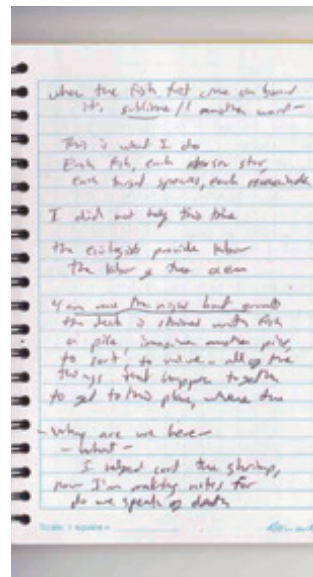 when the fish first come on board
it's sublime // another word -
This is what I do
Each fish, each star,
each species, each
I did not help this time
the ecologists provide labor
the labor of the ocean
4 am and the night boat
the deck is strewn with fish
a pile, imagine another pile,
to sort, to value - all of the
things that happen together
to get to this place, where the
- Why are we here -
- what -
I helped sort the shrimp,
now I'm making notes for
do we speak of death
Scale: 1 square =